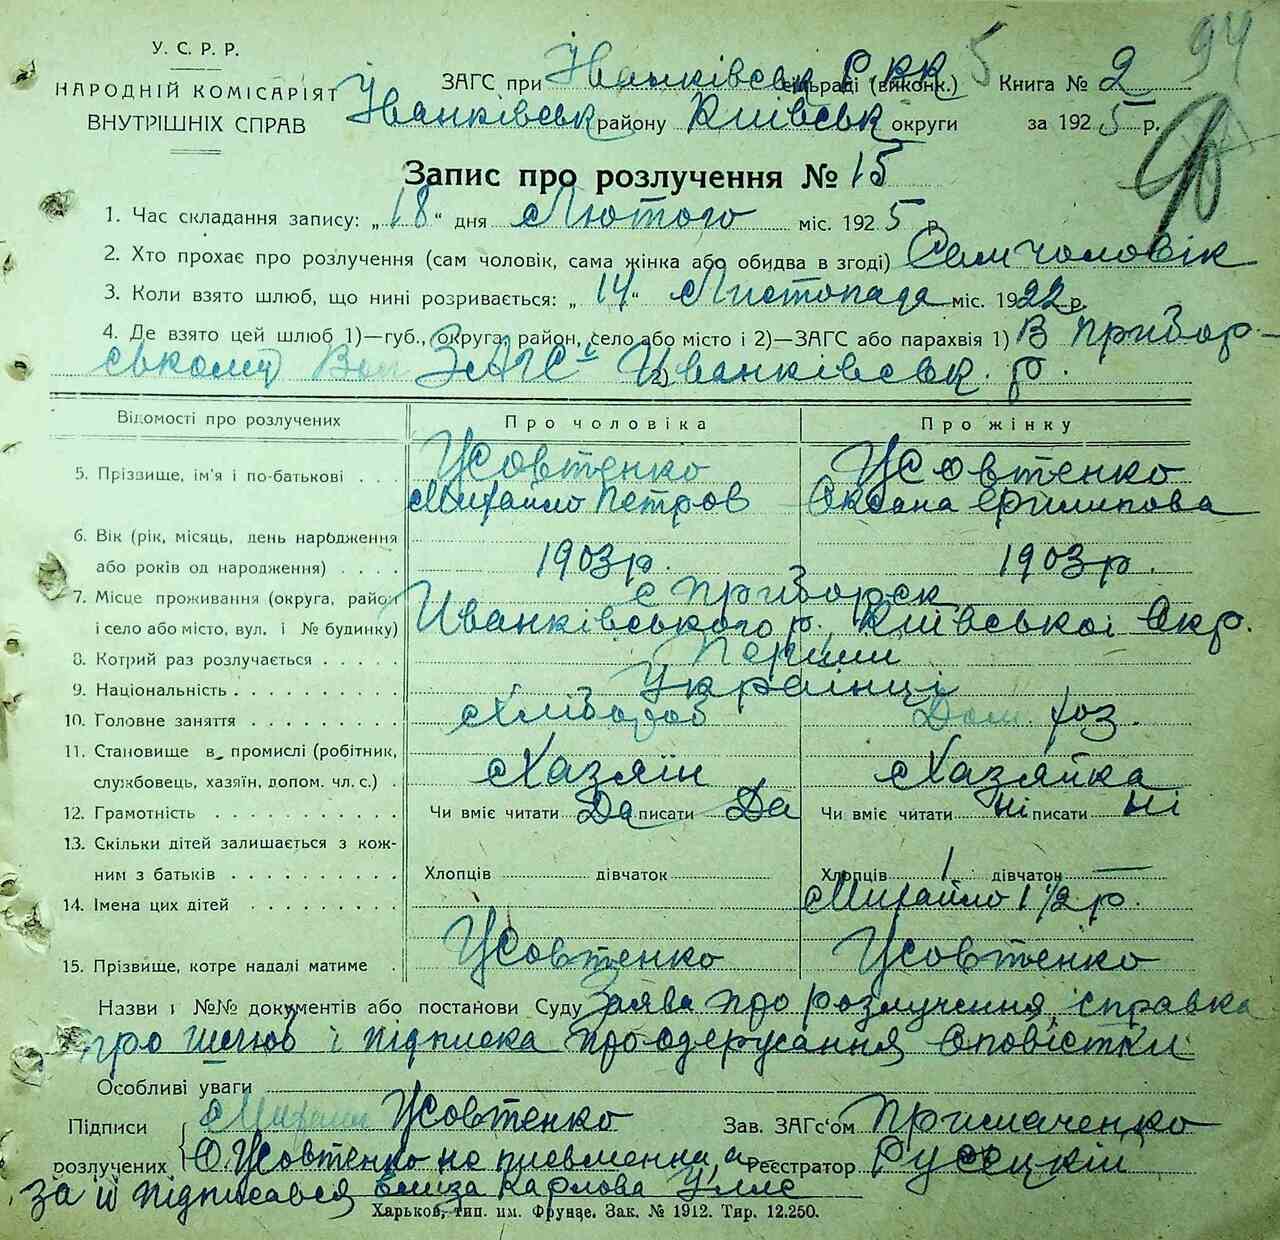 У. С. Р. Р.
НАРОДНІЙ КОМІСАРІЯТ
ВНУТРІШНІХ СПРАВ
94
5
ЗАГС при Іванківськ РВК сільраді (виконк.) Книга № 2
Іванківськ району Київськ округи за 1925 р.
Запис про розлучення № 15
1. Час складання запису: „18“ дня Лютого міс. 1925 р.
2. Хто прохає про розлучення (сам чоловік, сама жінка або обидва в згоді) Сам чоловік
3. Коли взято шлюб, що нині розривається: „14“ Листопада міс. 1922 р.
4. Де взято цей шлюб 1)—губ., округа, район, село або місто і 2)—ЗАГС або парахвія 1) В Прибор-
ському ЗАГСі Иванківськ. р.
Відомості про розлучених Про чоловіка Про жінку
5. Прізвище, ім'я і по-батькові . . . Усовтенко Усовтенко
Михайло Петров Оксана Филипова
6. Вік (рік, місяць, день народження
або років од народження) . . . . 1903р. 1903р.
7. Місце проживання (округа, район с Приборск
і село або місто, вул. і № будинку) Иванківського р. Київської Окр.
8. Котрий раз розлучається . . . . . Перший
9. Національність . . . . . . . . . . Українці
10. Головне заняття . . . . . . . . . Хлібороб Дом. хоз.
11. Становище в промислі (робітник,
службовець, хазяїн, допом. чл. с.) . Хазяїн Хазяйка
12. Грамотність . . . . . . . . . . . Чи вміє читати Да писати Да Чи вміє читати ні писати ні
13. Скільки дітей залишається з кож-
ним з батьків . . . . . . . . . . Хлопців дівчаток Хлопців 1 дівчаток —
14. Імена цих дітей . . . . . . . . Михайло 1 1/2 р.
15. Прізвище, котре надалі матиме . Усовтенко Усовтенко
Назви і №№ документів або постанови Суду Заява про розлучення, справка
про шлюб і підписка про одерусання Оповістки
Особливі уваги
Підписи Михайло Усовтенко Зав. ЗАГС'ом Примаченко
розлучених О. Усовтенко не письменна, а Реєстратор Русецкій
за її підписався Елиза Карлова
Харьков, тип. им. Фрунзе. Зак. № 1912. Тир. 12.250.